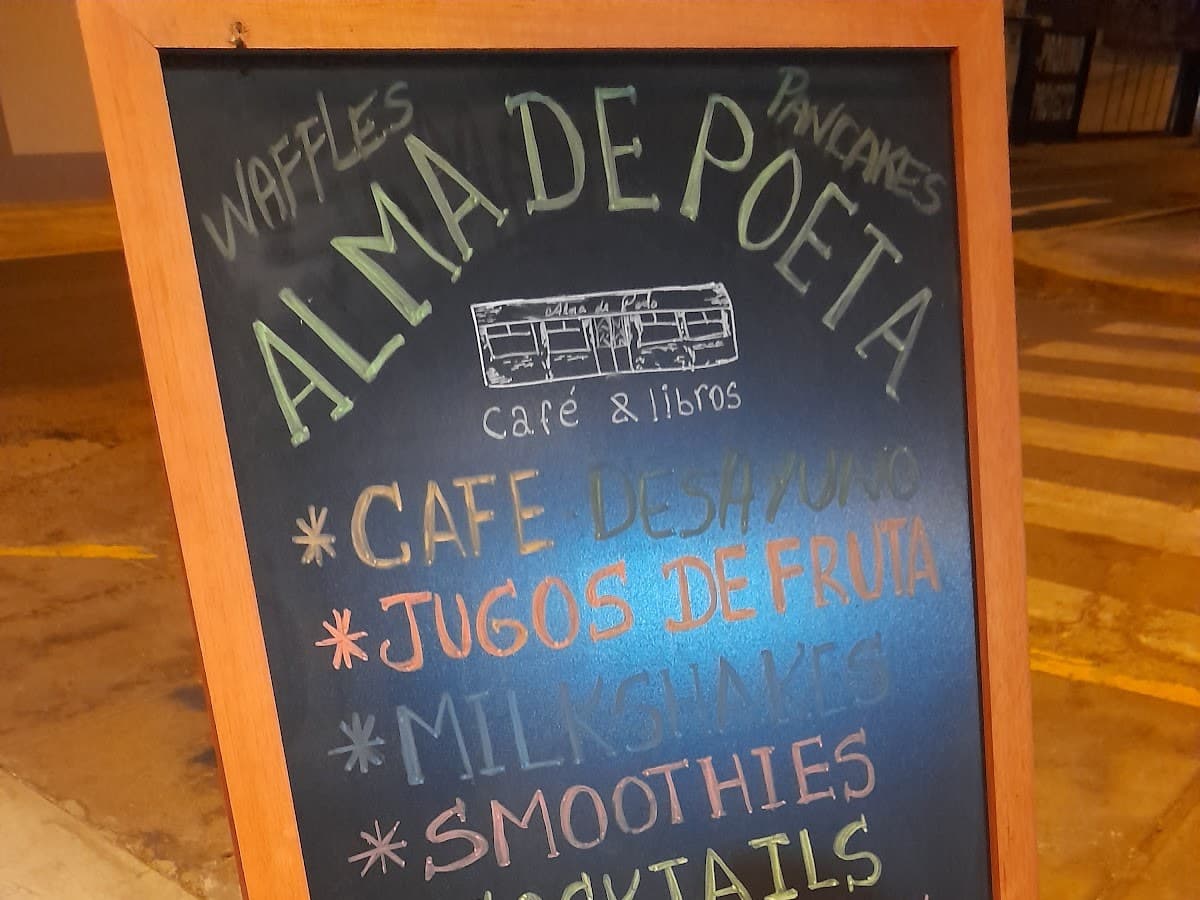 WAFFLES
PANCAKES
ALMA DE POETA
Café & libros
*CAFE DESAYUNO
*JUGOS DE FRUTA
*MILKSHAKES
*SMOOTHIES